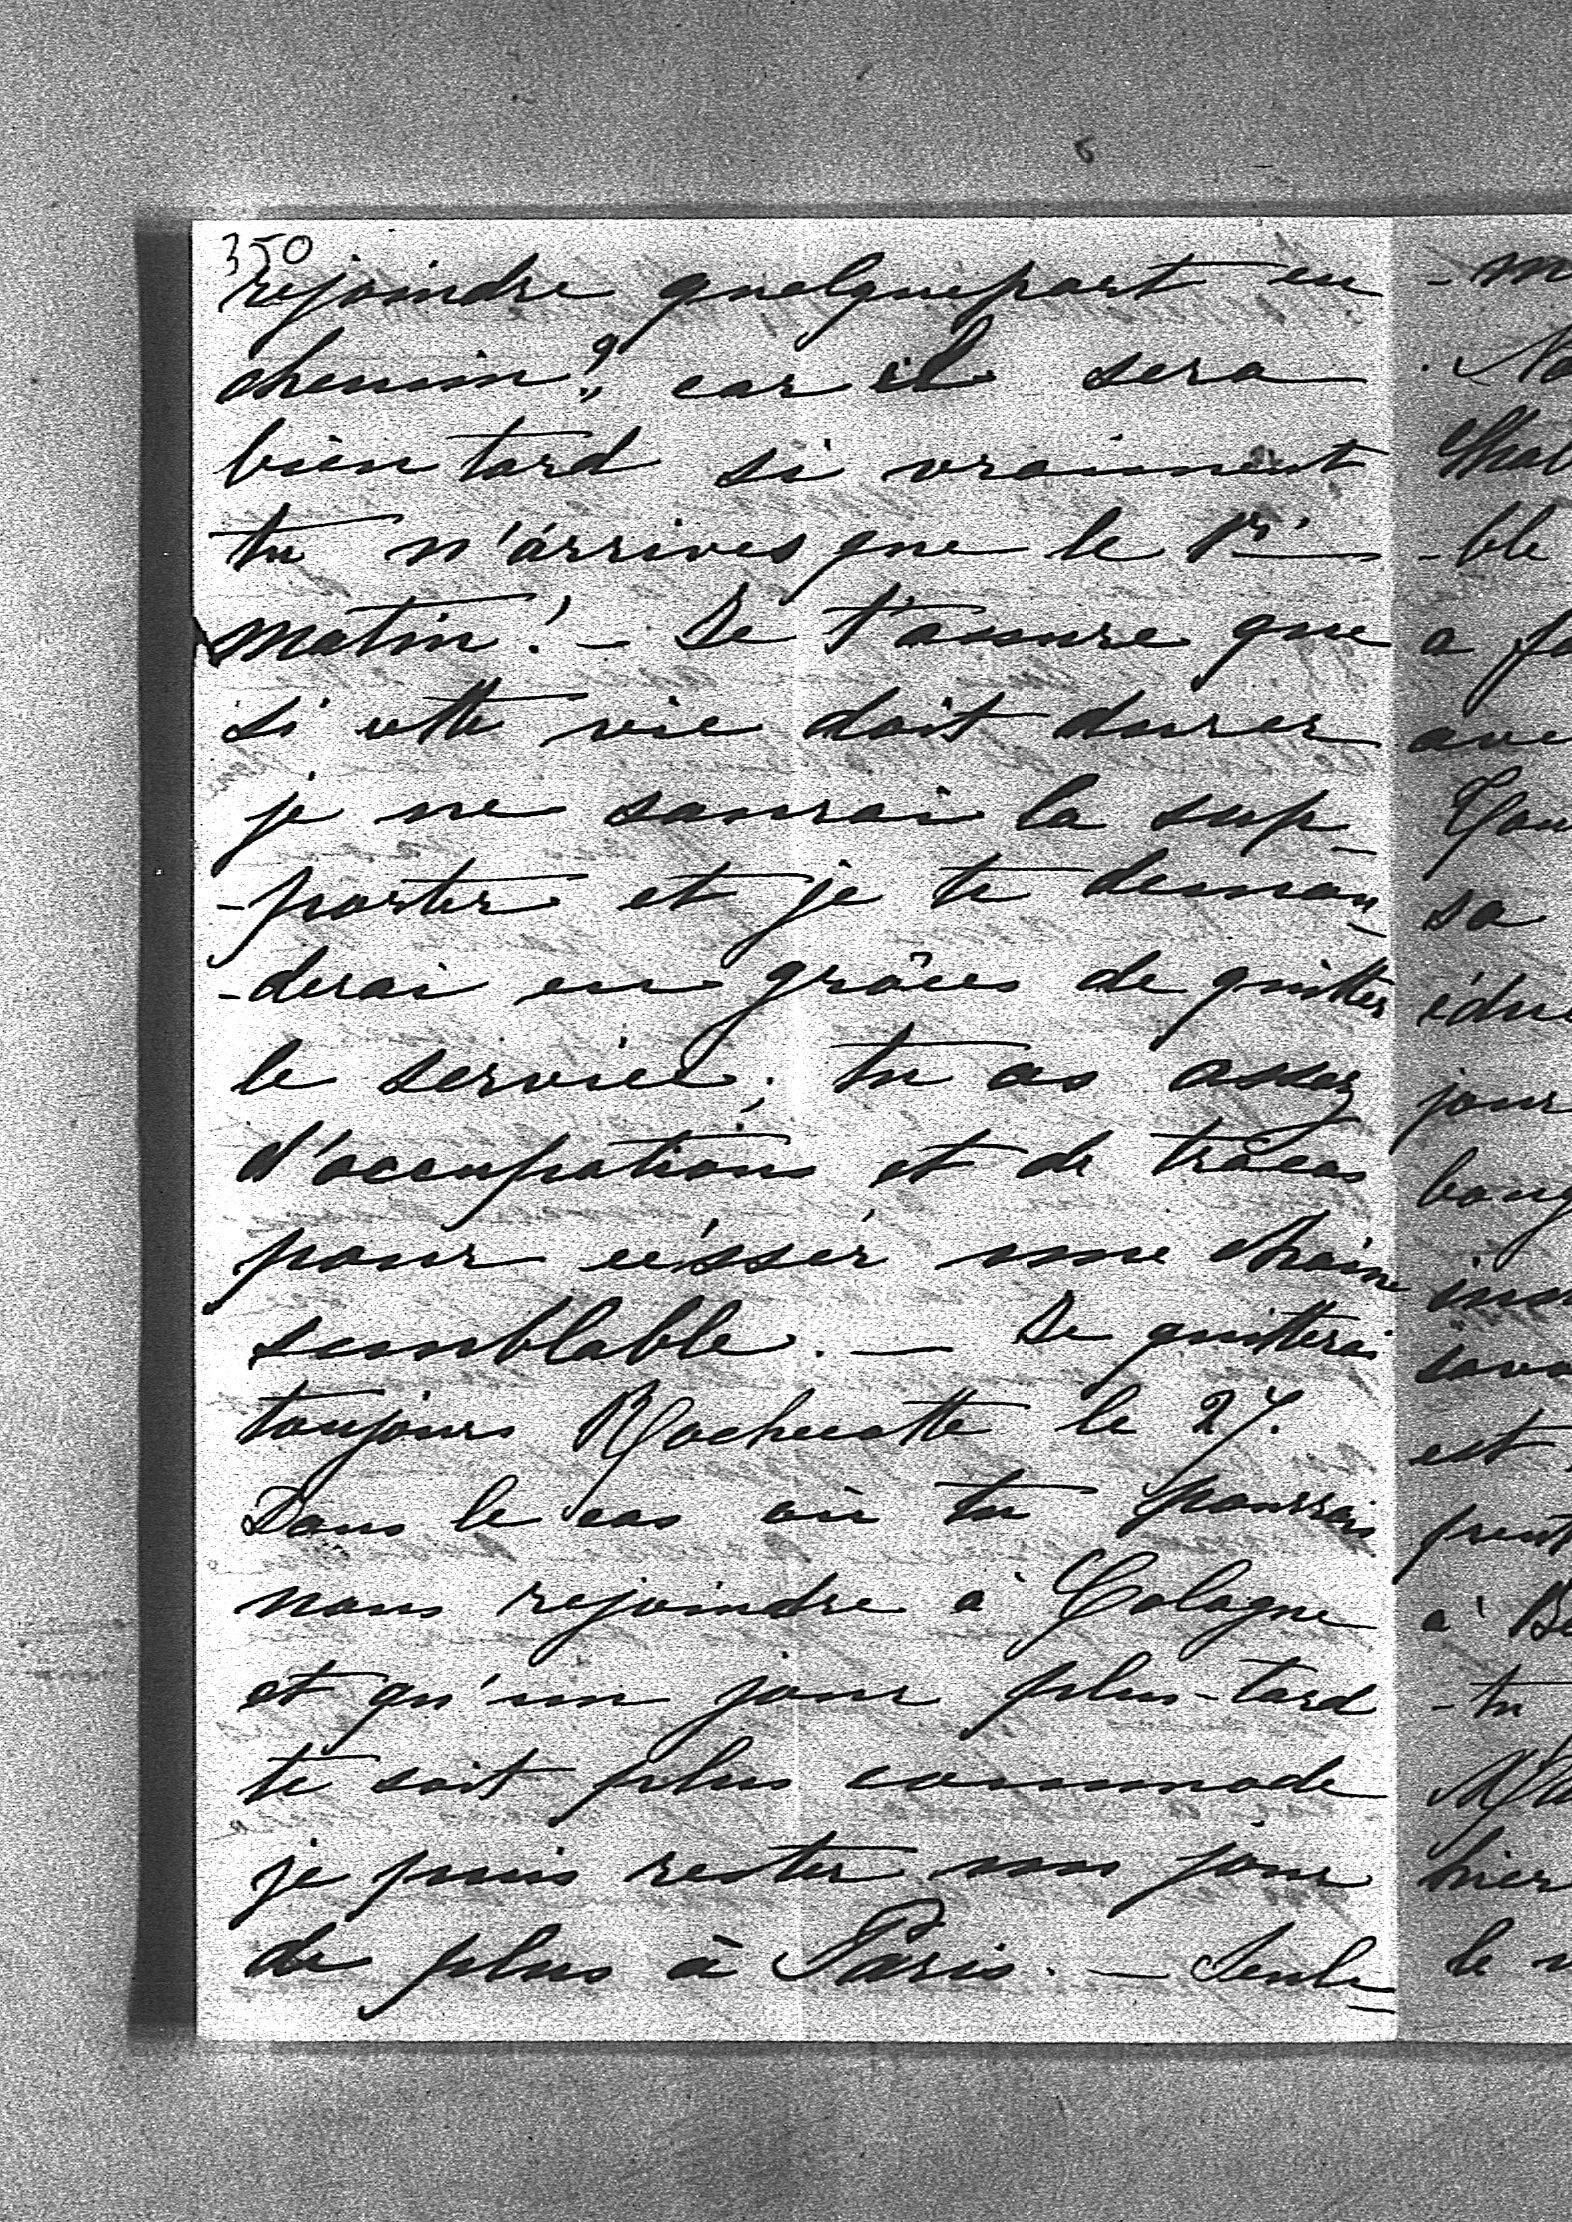 350
rejoindre quelquepart en
chemin? car il sera
bien tard si vraiment
tu n'arrives que le 1er
matin! - Je t'assure que
si cette vie doit durer
je ne saurai la sup-
-porter et je te deman-
-derai en grâces de quitter
le service; tu as assez
d'occupations et de tracas
pour une chaine
semblable. - Je quitterai
toujours Rochecotte le 27.
Dans le cas où tu pourrais
nous rejoindre à Cologne
et qu'un jour plus-tard
te soit plus commode
je puis rester un jour
de plus à Paris. - Seule=
- m
. No
-ble
a fa
ave
sa
édu
jour
est
à Be
- tu
hier
le